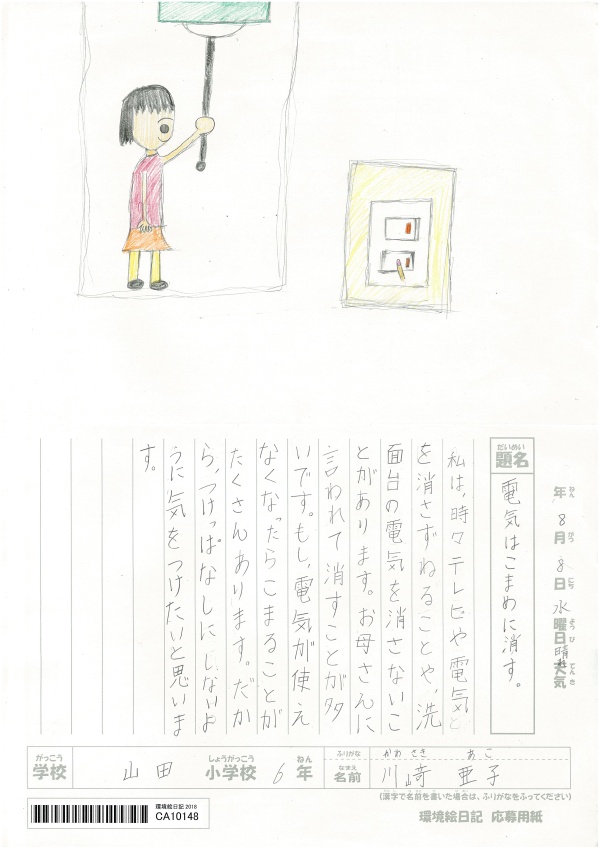 年8月8日水曜日晴れ天気
ねん がつ にち ようび てんき
だいめい
題名
電気はこまめに消す。
私は、時々テレビや電気と
を消さずねることや、洗
面台の電気を消さないこ
とがあります。お母さんに
言われて消すことが多
いです。もし、電気が使え
なくなったらこまることが
たくさんあります。だか
ら、つけっぱなしにしないよ
うに気をつけたいと思いま
す。
がっこう
学校
山田
しょうがっこう
小学校
6
ねん
年
ふりがな
かわさき あこ
なまえ
名前
川崎 亜子
(漢字で名前を書いた場合は、ふりがなをふってください)
環境絵日記 2018
CA10148
環境絵日記 応募用紙